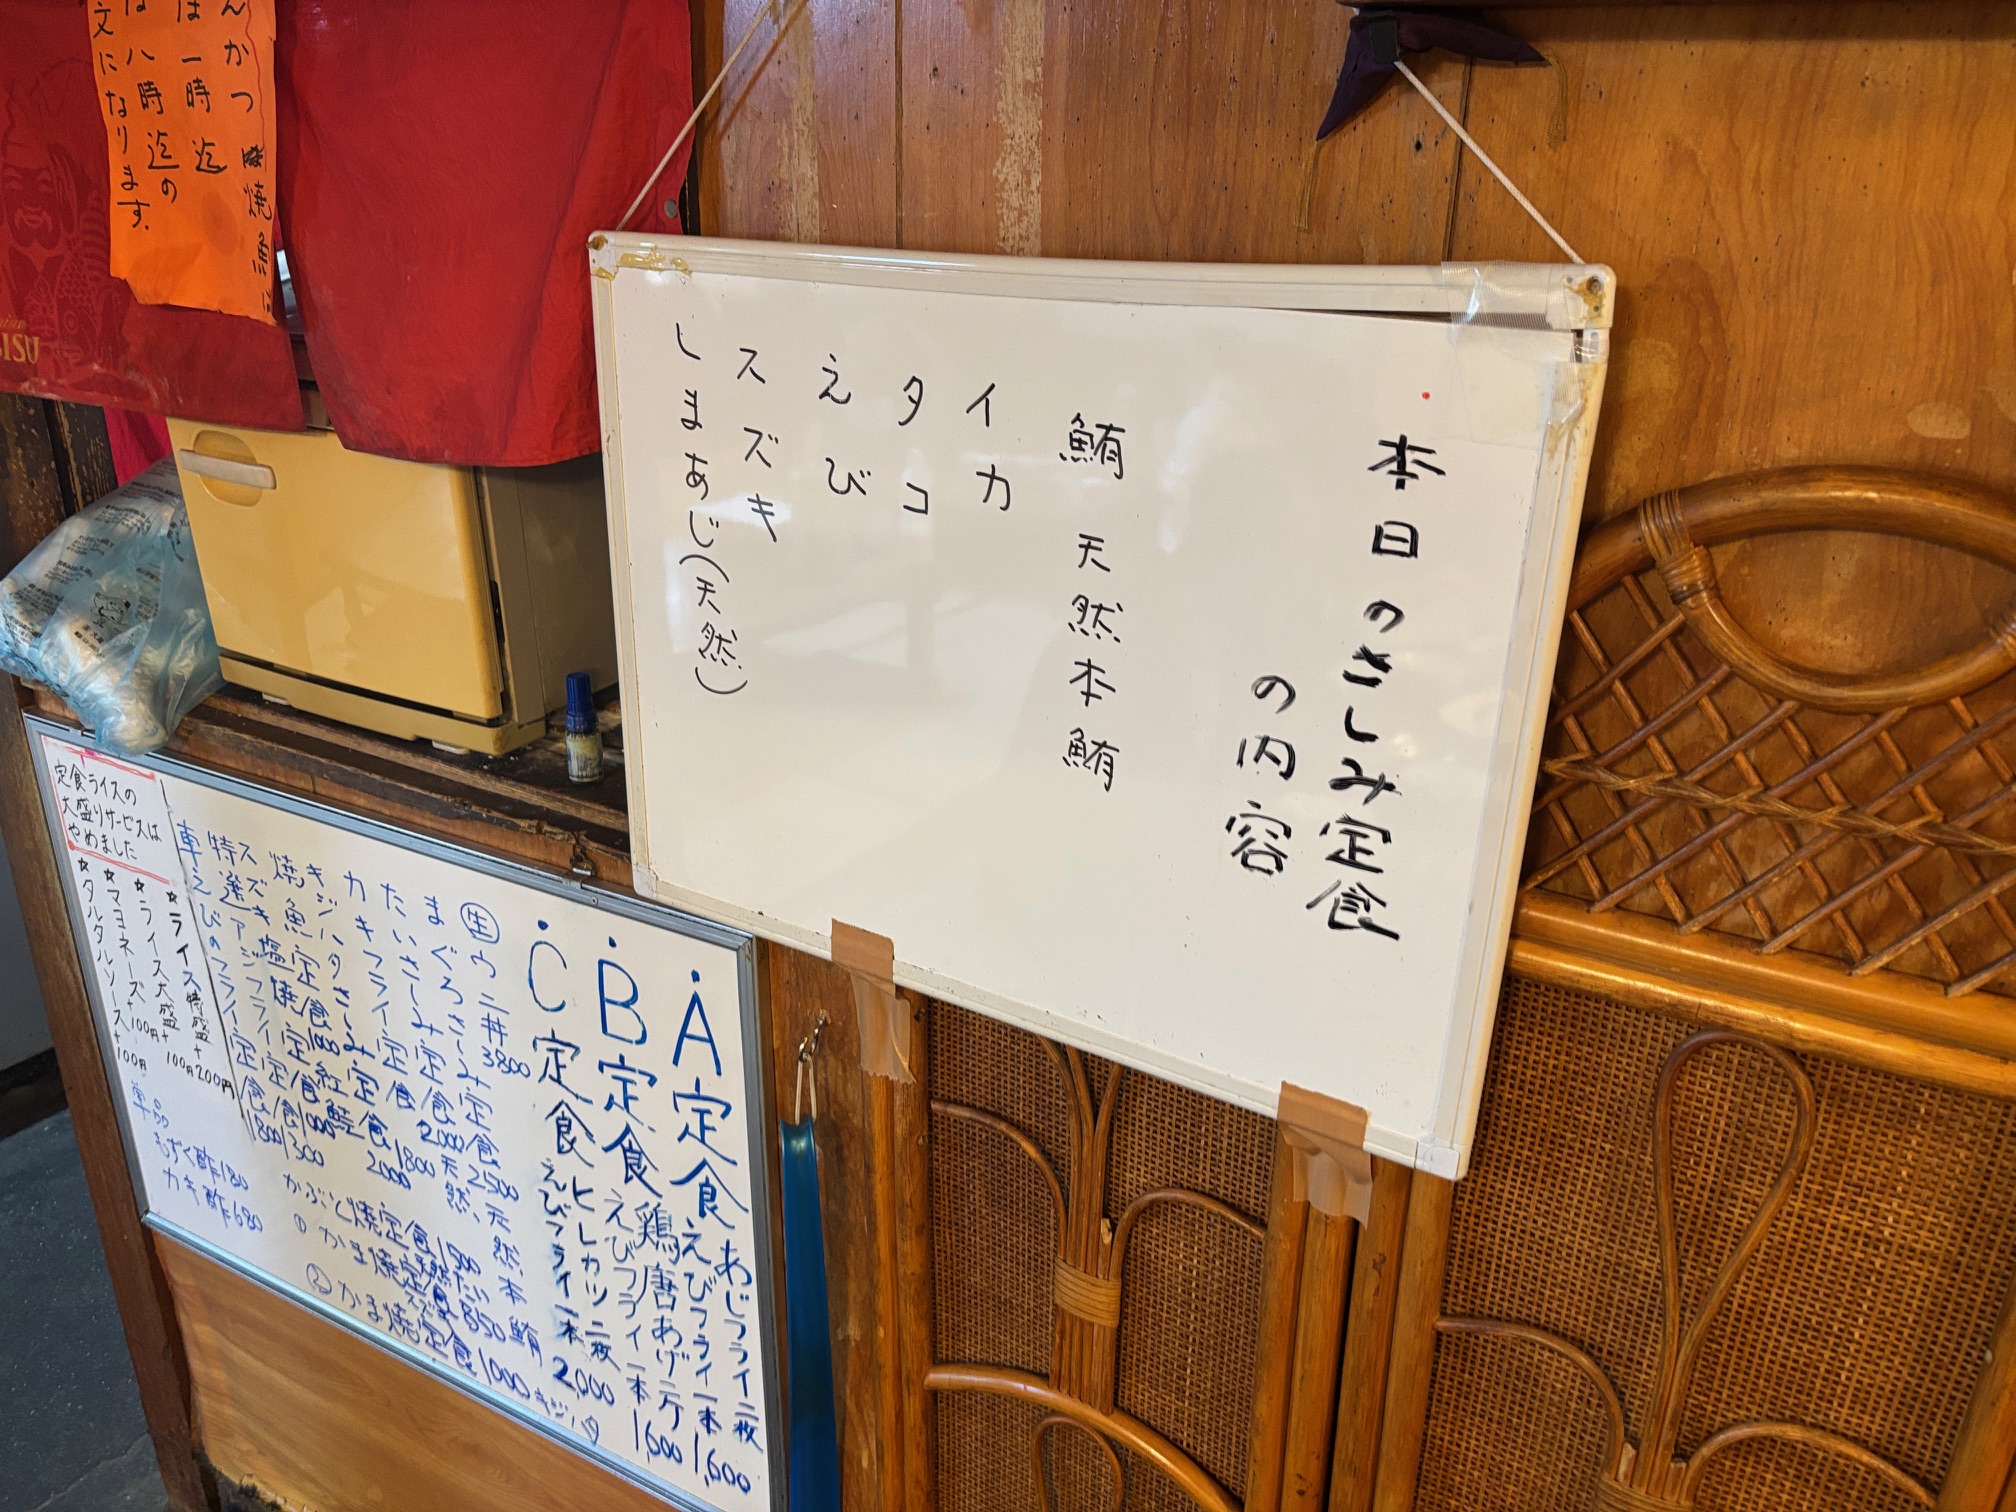 本日のさしみ定食
の内容
鮪 天然本鮪
イカ
タコ
えび
スズキ
しまあじ(天然)
焼魚は
んかつ
は一時迄
は八時迄の
文になります.
・A定食 あじフライ二枚 えびフライ一本 1,600
・B定食 鶏唐あげ二ケ えびフライ一本 1,600
・C定食 ヒレカツ二枚 えびフライ一本 2,000
生ウニ丼 3800
まぐろさしみ定食 2500 天然本鮪
たいさしみ定食 2000 天然
カキフライ定食 1800
キジハタさしみ定食 2000
焼魚定食 1000 紅鮭
スズキ塩焼定食 1000
特選アジフライ定食 1300
車えびのフライ定食 1800
かぶと焼定食 1500
①かま焼定食 850
②かま焼定食 1000 キジハタ
定食ライスの
大盛りサービスは
やめました
☆ライス特盛+200円
☆ライス大盛+100円
☆マヨネーズ+100円
☆タルタルソース+100円
単品
もずく酢 180
カキ酢 680